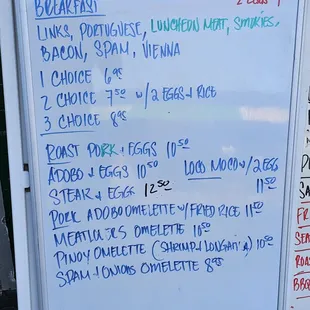 BREAKFAST
LINKS, PORTUGUESE, LUNCHEON MEAT, SMOKIES,
BACON, SPAM, VIENNA
1 CHOICE 6.95
2 CHOICE 7.50 W/2 EGGS + RICE
3 CHOICE 8.95
ROAST PORK + EGGS 10.50
ADOBO + EGGS 10.50 LOCO MOCO W/2 EGG
STEAK + EGGS 12.50 11.50
PORK ADOBO OMELETTE W/FRIED RICE 11.50
MEATLOVERS OMELETTE 10.50
PINOY OMELETTE (SHRIMP + LONGANISA) 10.50
SPAM + ONIONS OMELETTE 8.95